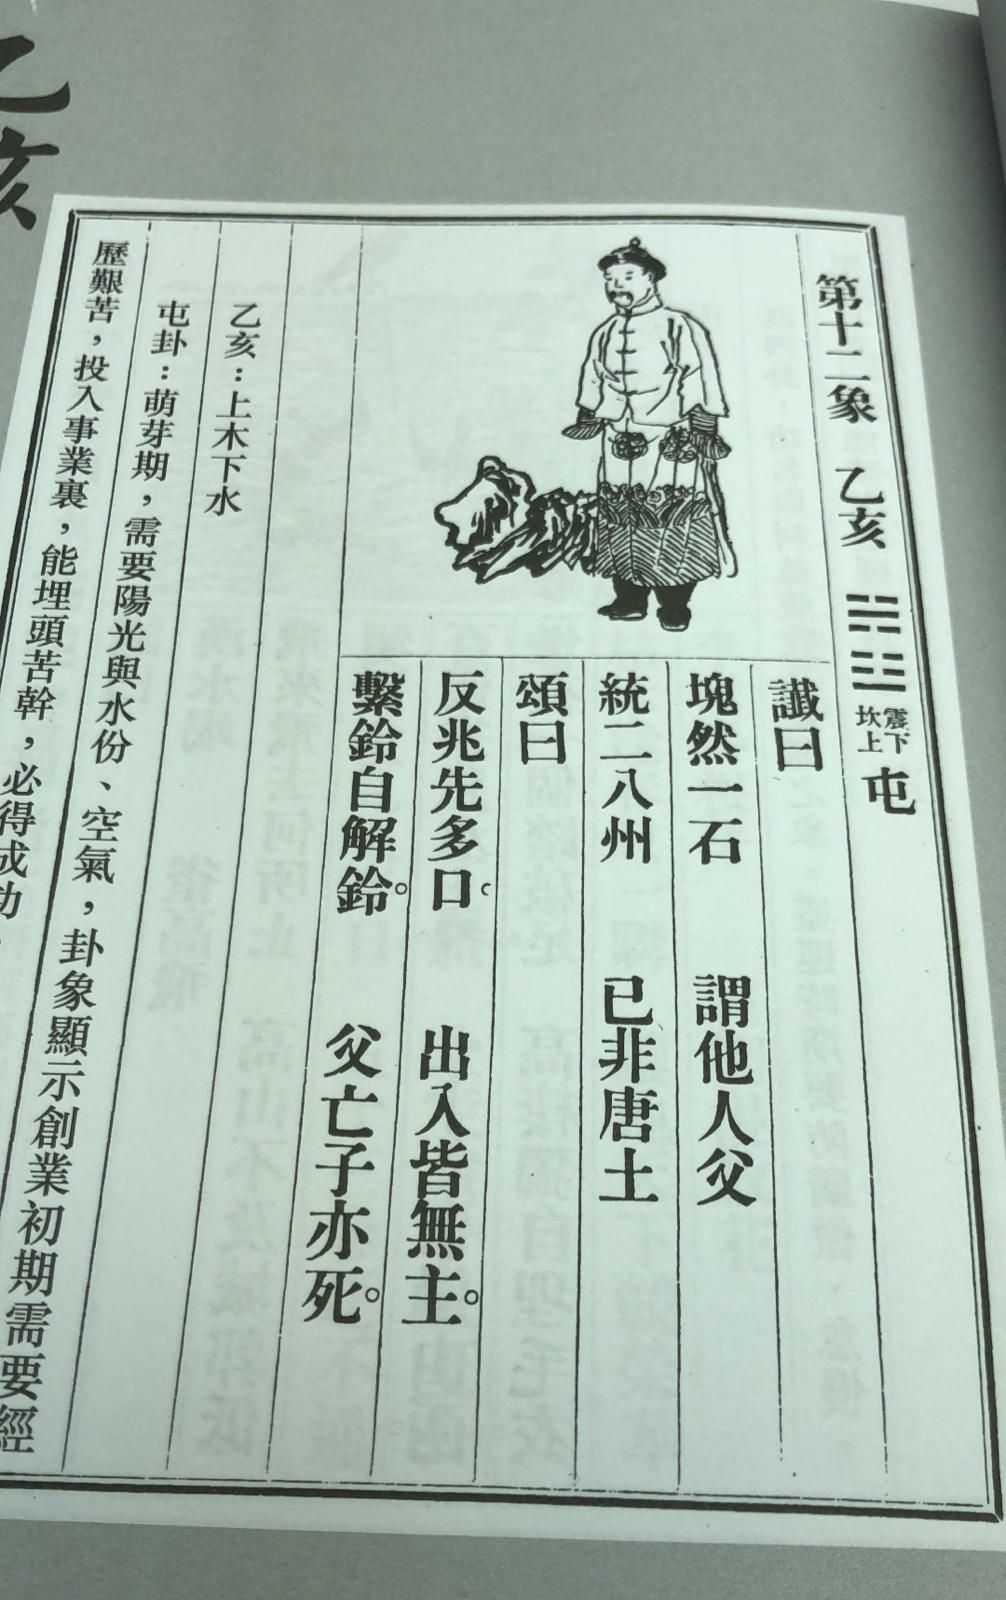 乙亥
第十二象 乙亥 震下坎上 屯
讖曰
塊然一石 謂他人父
統二八州 已非唐土
頌曰
反兆先多口。 出入皆無主。
繫鈴自解鈴。 父亡子亦死。
乙亥：上木下水
屯卦：萌芽期，需要陽光與水份、空氣，卦象顯示創業初期需要經
歷艱苦，投入事業裏，能埋頭苦幹，必得成功。